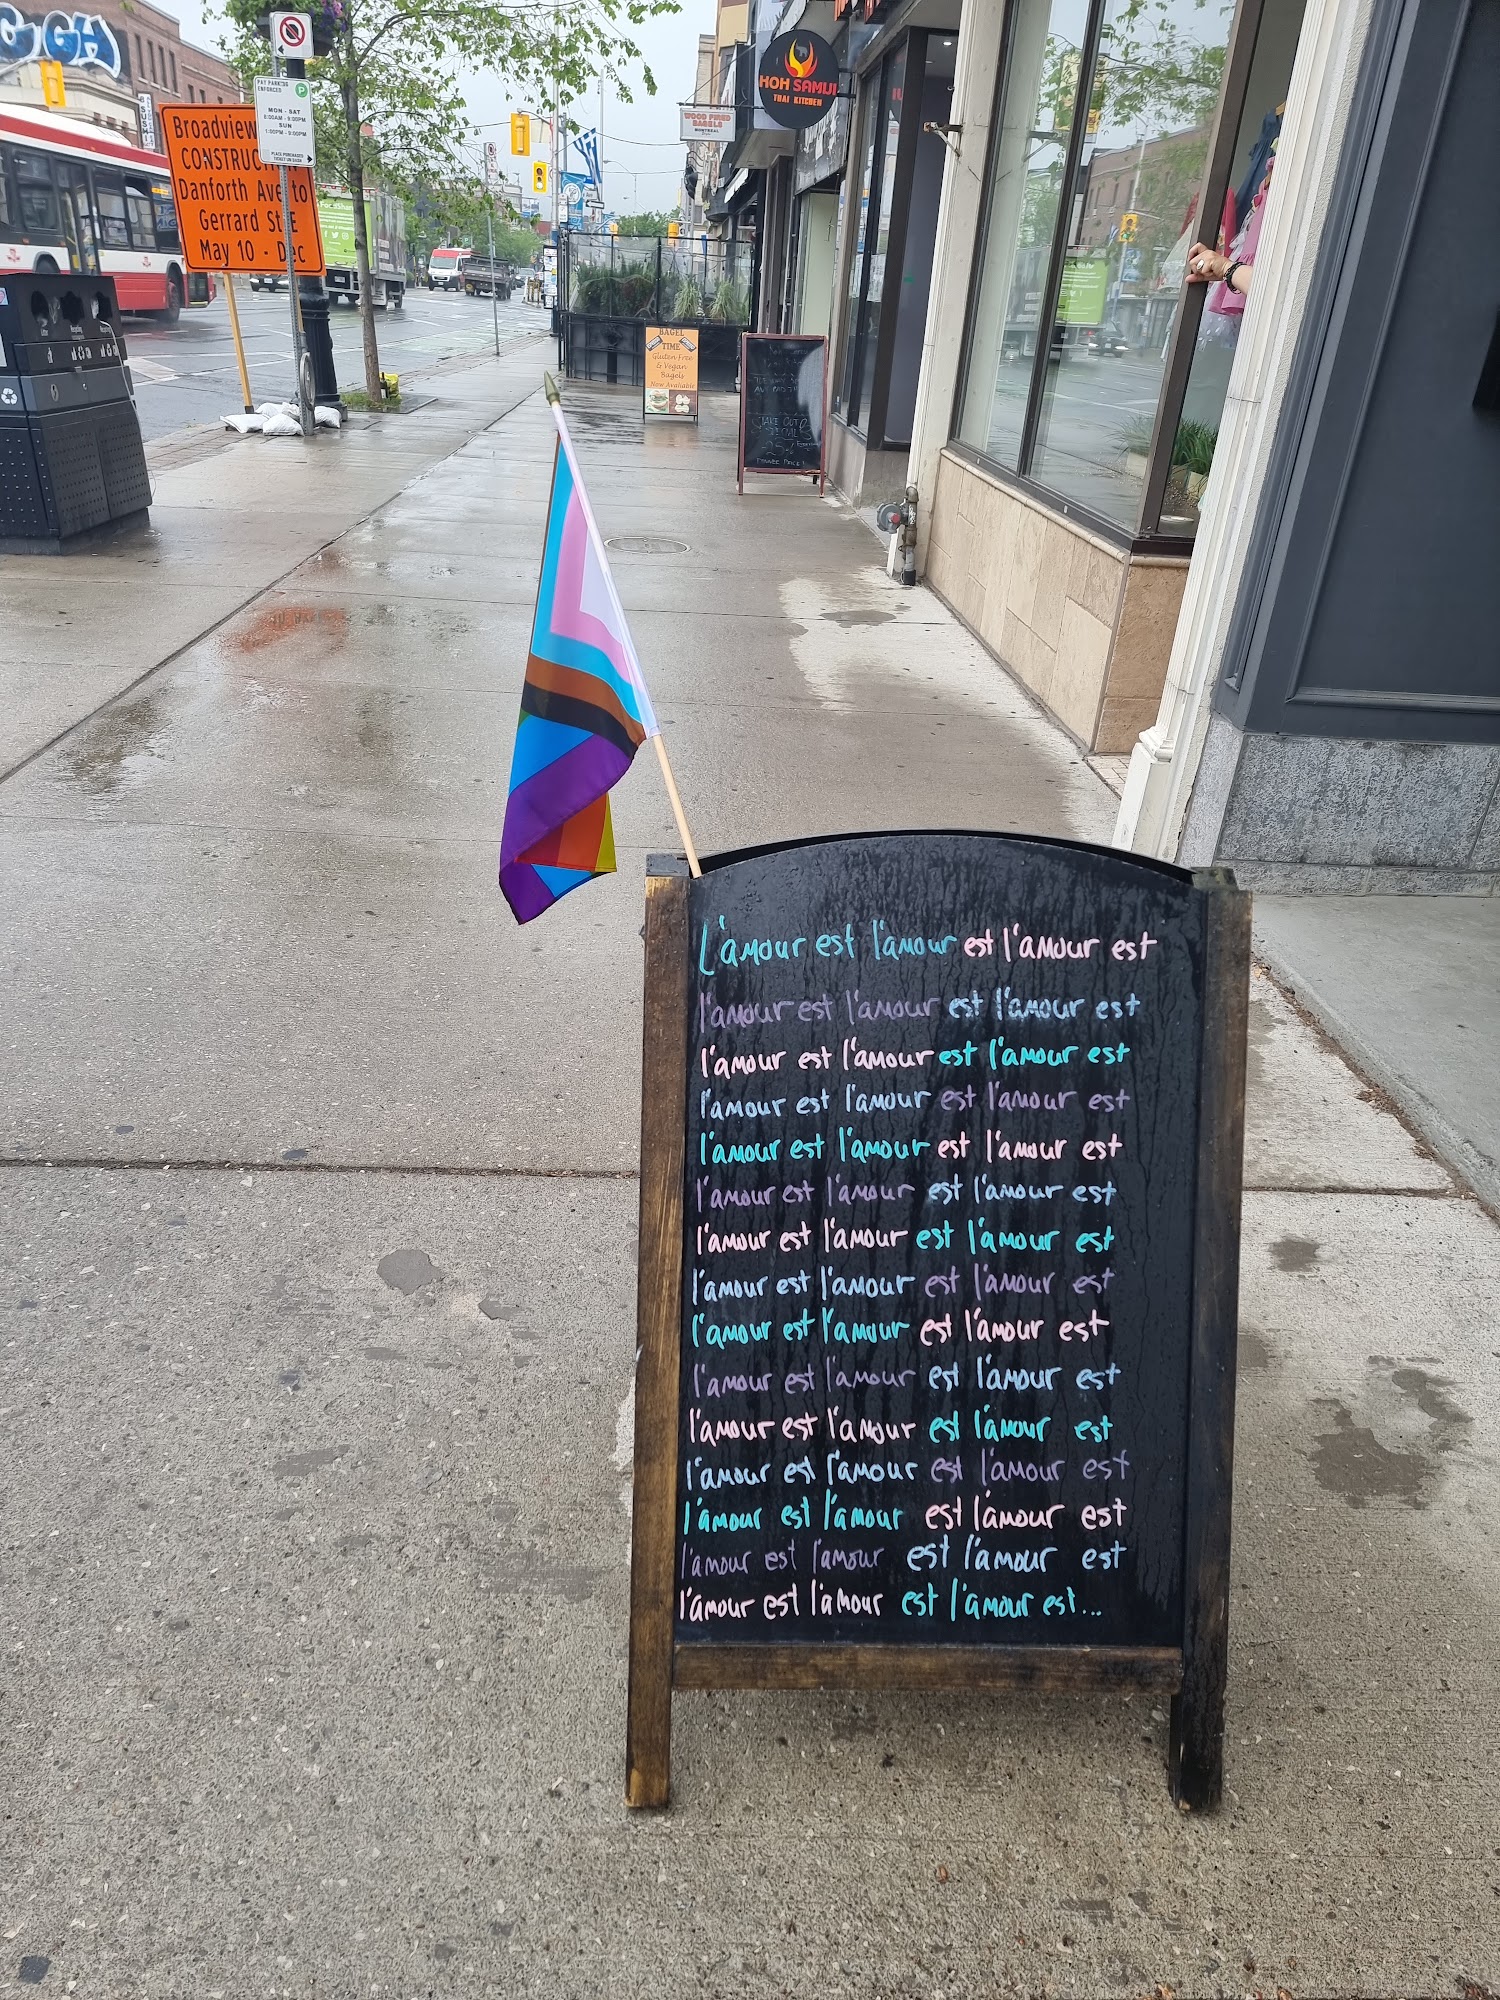 Broadview
CONSTRUC
Danforth Ave to
Gerrard St E
May 10 - Dec
PAY PARKING
ENFORCED
P
MON - SAT
8:00AM - 9:00PM
SUN
1:00PM - 9:00PM
KOH SAMUI
THAI KITCHEN
WOOD FIRED
BAGELS
MONTREAL
BAGEL
TIME
Gluten Free
& Vegan
Bagels
Now Available
TAKE OUT
SPECIAL
L'amour est l'amour est l'amour est
l'amour est l'amour est l'amour est
l'amour est l'amour est l'amour est
l'amour est l'amour est l'amour est
l'amour est l'amour est l'amour est
l'amour est l'amour est l'amour est
l'amour est l'amour est l'amour est
l'amour est l'amour est l'amour est
l'amour est l'amour est l'amour est
l'amour est l'amour est l'amour est
l'amour est l'amour est l'amour est
l'amour est l'amour est l'amour est
l'amour est l'amour est l'amour est
l'amour est l'amour est l'amour est
l'amour est l'amour est l'amour est...